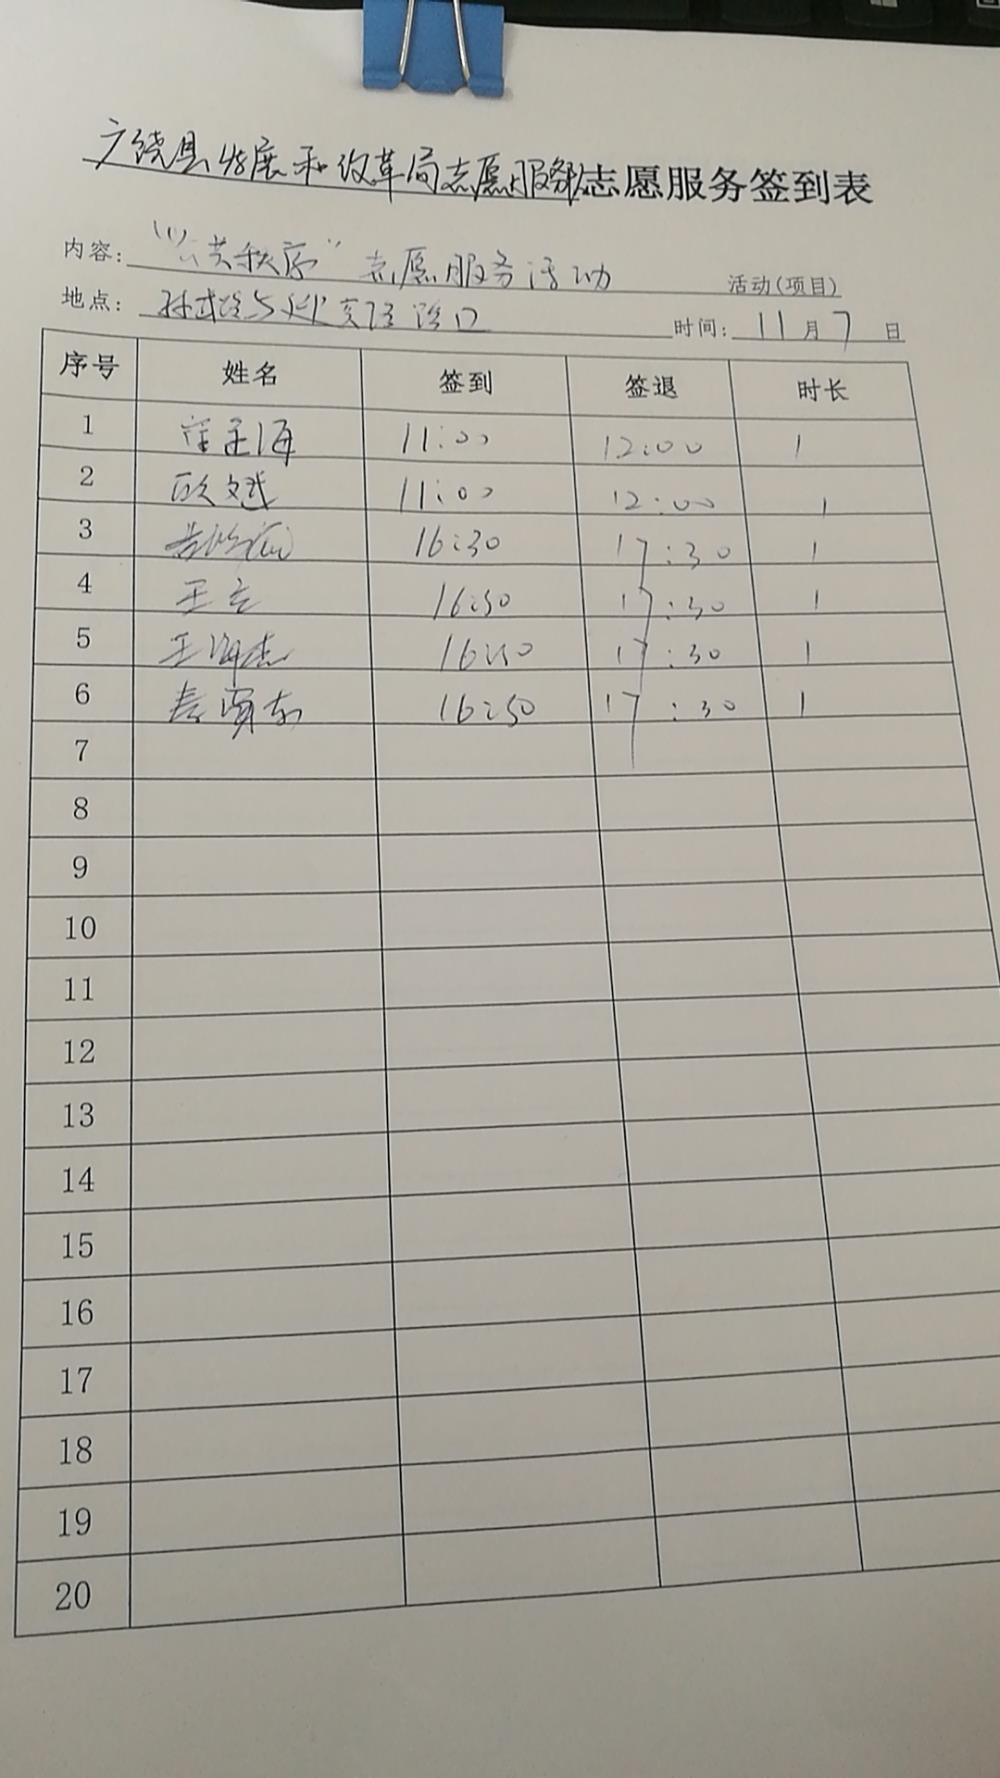 广饶县发展和改革局志愿服务队志愿服务签到表
内容: "公共秩序"志愿服务活动 活动(项目)
地点: 孙武路与 路口 时间: 11月7日
序号 姓名 签到 签退 时长
1 海 11:00 12:00 1
2 欧文斌 11:00 12:00 1
3 16:30 17:30 1
4 王立 16:30 17:30 1
5 王海杰 16:30 17:30 1
6 16:30 17:30 1
7
8
9
10
11
12
13
14
15
16
17
18
19
20